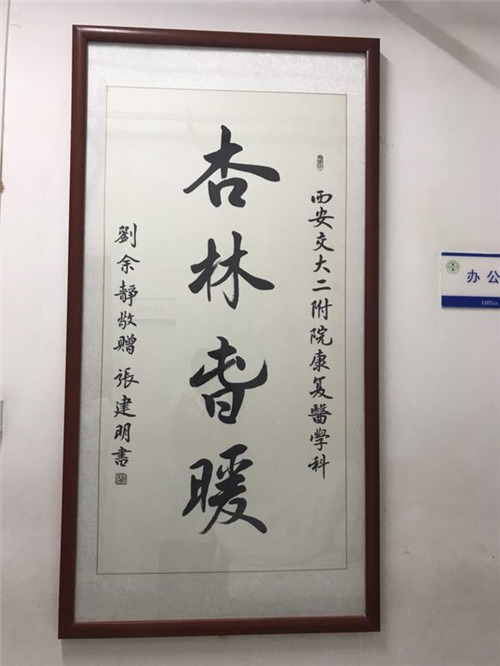 西安交大二附院康复醫學科
杏林春暖
劉余靜敬贈 張建明書
办公
Office